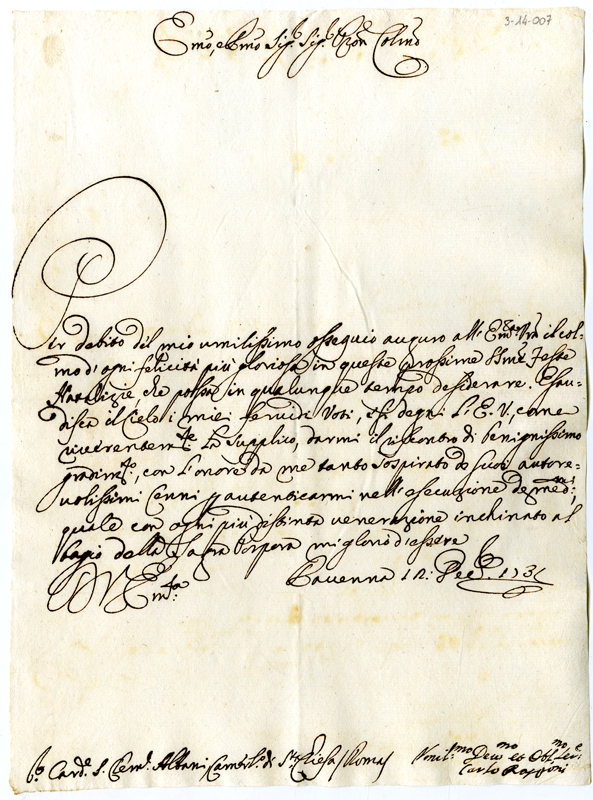 3-14-007
Emo, e Rmo Sig.r Sig.r Pron Colmo
Per debito del mio umilissimo ossequio auguro all' Em.za Vra il col-
mo d'ogni felicità più gloriosa in queste prossime SSme Feste
Natalizie che possa in qualunque tempo desiderare. Esau-
disca il Cielo i miei fervidi Voti, e si degni l'E.V., come
riverentem.te La supplico, darmi il riscontro di benignissimo
gradim.to, con l'onore da me tanto sospirato de suoi autore-
volissimi cenni p autenticarmi nell'esecuzione de med.mi,
quale con ogni più distinta venerazione inchinato al
bagio della Sagra Porpora mi glorio d'essere
Em.za
Ravenna 12: Dec.
Card.e S. Clem.te Albani Camerl.o di S.ta Chiesa / Roma /
Umil.mo Devmo et Obl.mo Ser.e
Carlo Rasponi